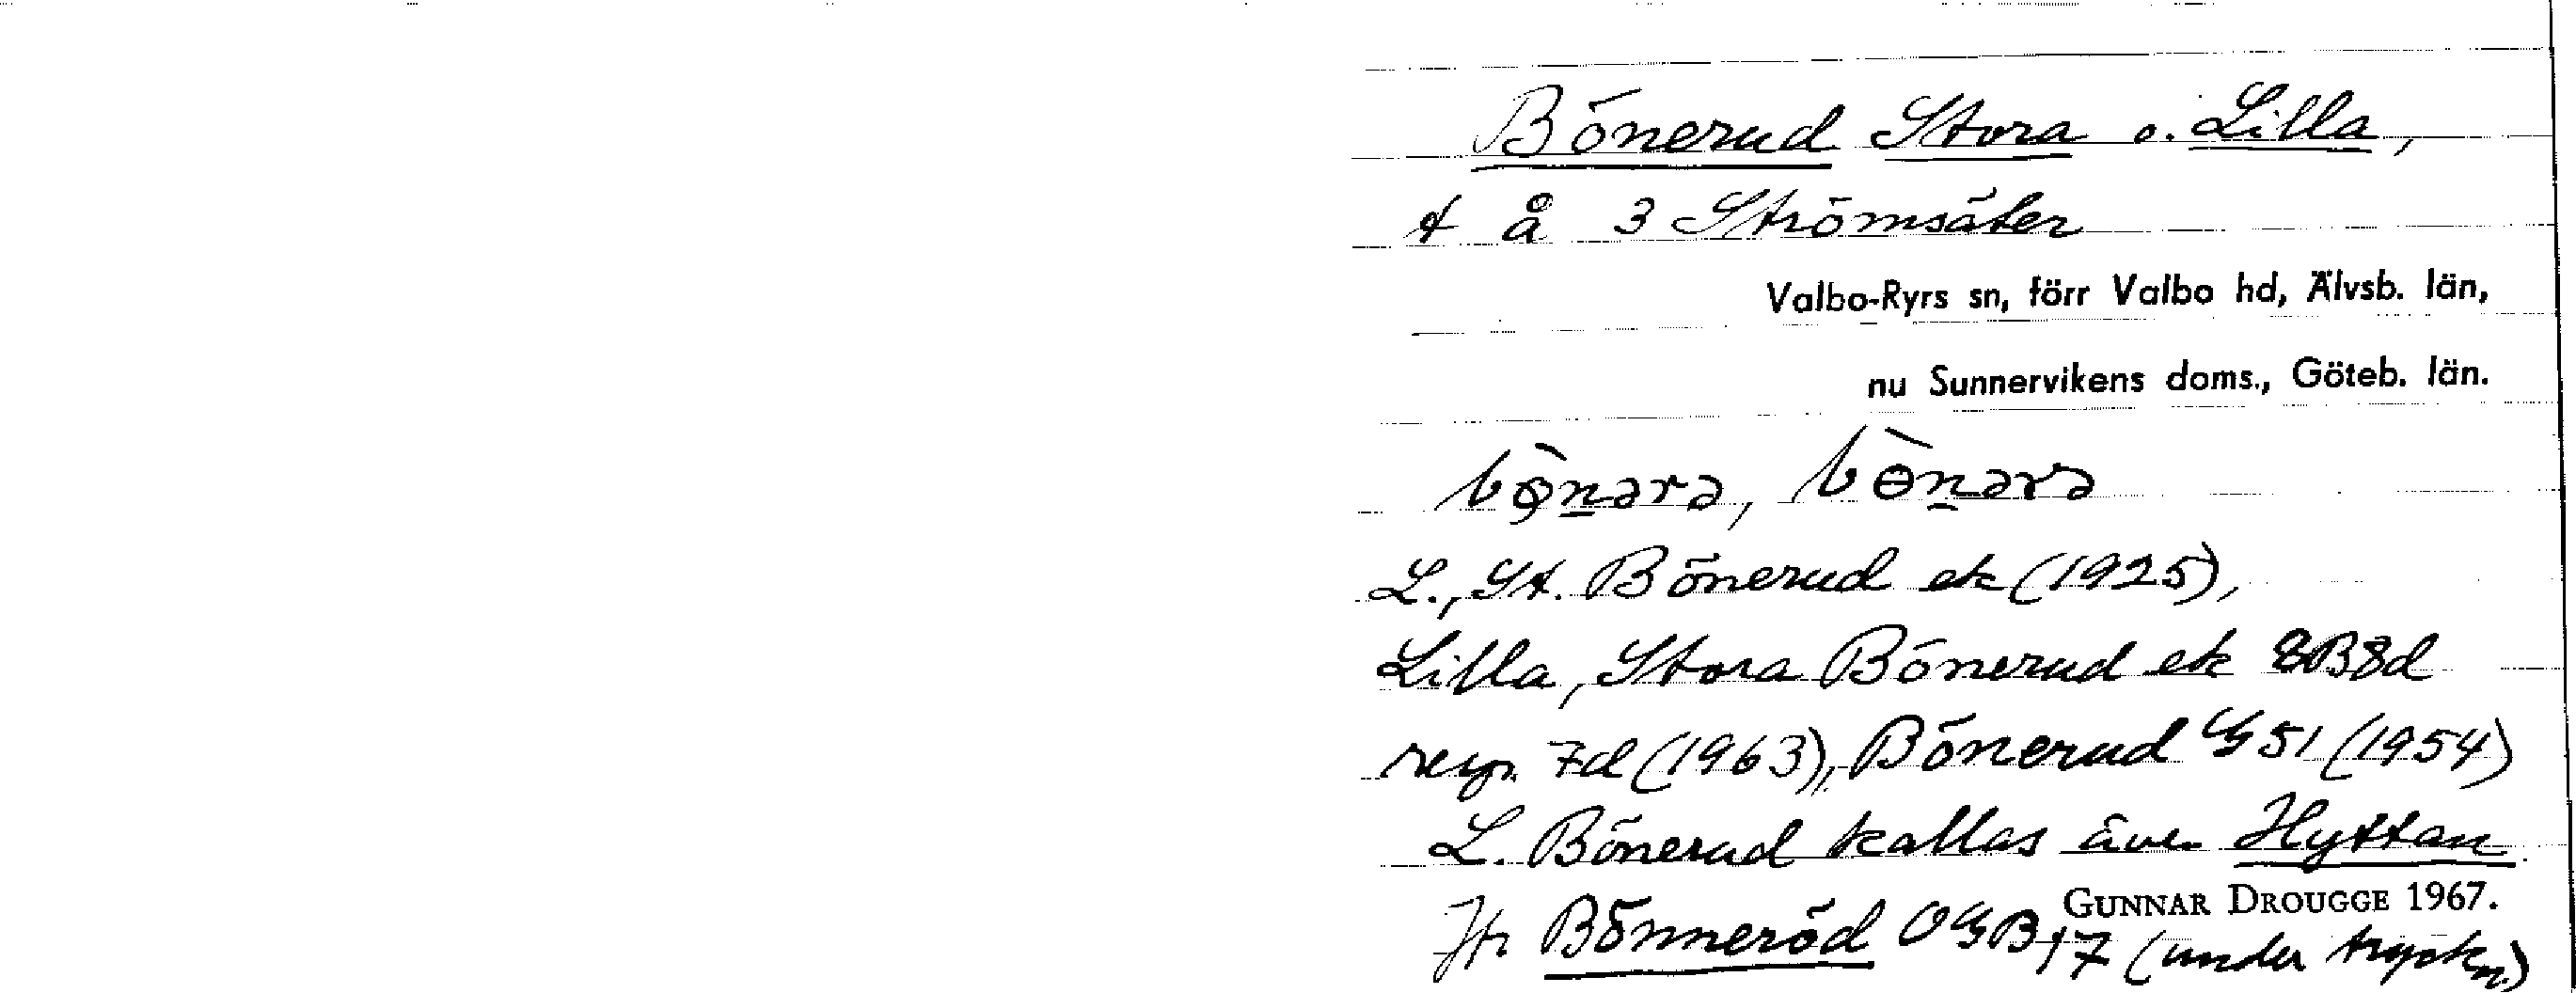 Bönerud Stora o. Lilla,
t å 3 Strömsäter
Valbo-Ryrs sn, förr Valbo hd, Älvsb. län,
nu Sunnervikens doms., Göteb. län.
L., St. Bönerud ek (1925),
Lilla, Stora Bönerud ek 8B8d
resp. 7d (1963), Bönerud G 51 (1954)
L. Bönerud kallas även Hyttan
GUNNAR DROUGGE 1967.
Jfr Bönneröd OGB 17 (under tryckn.)